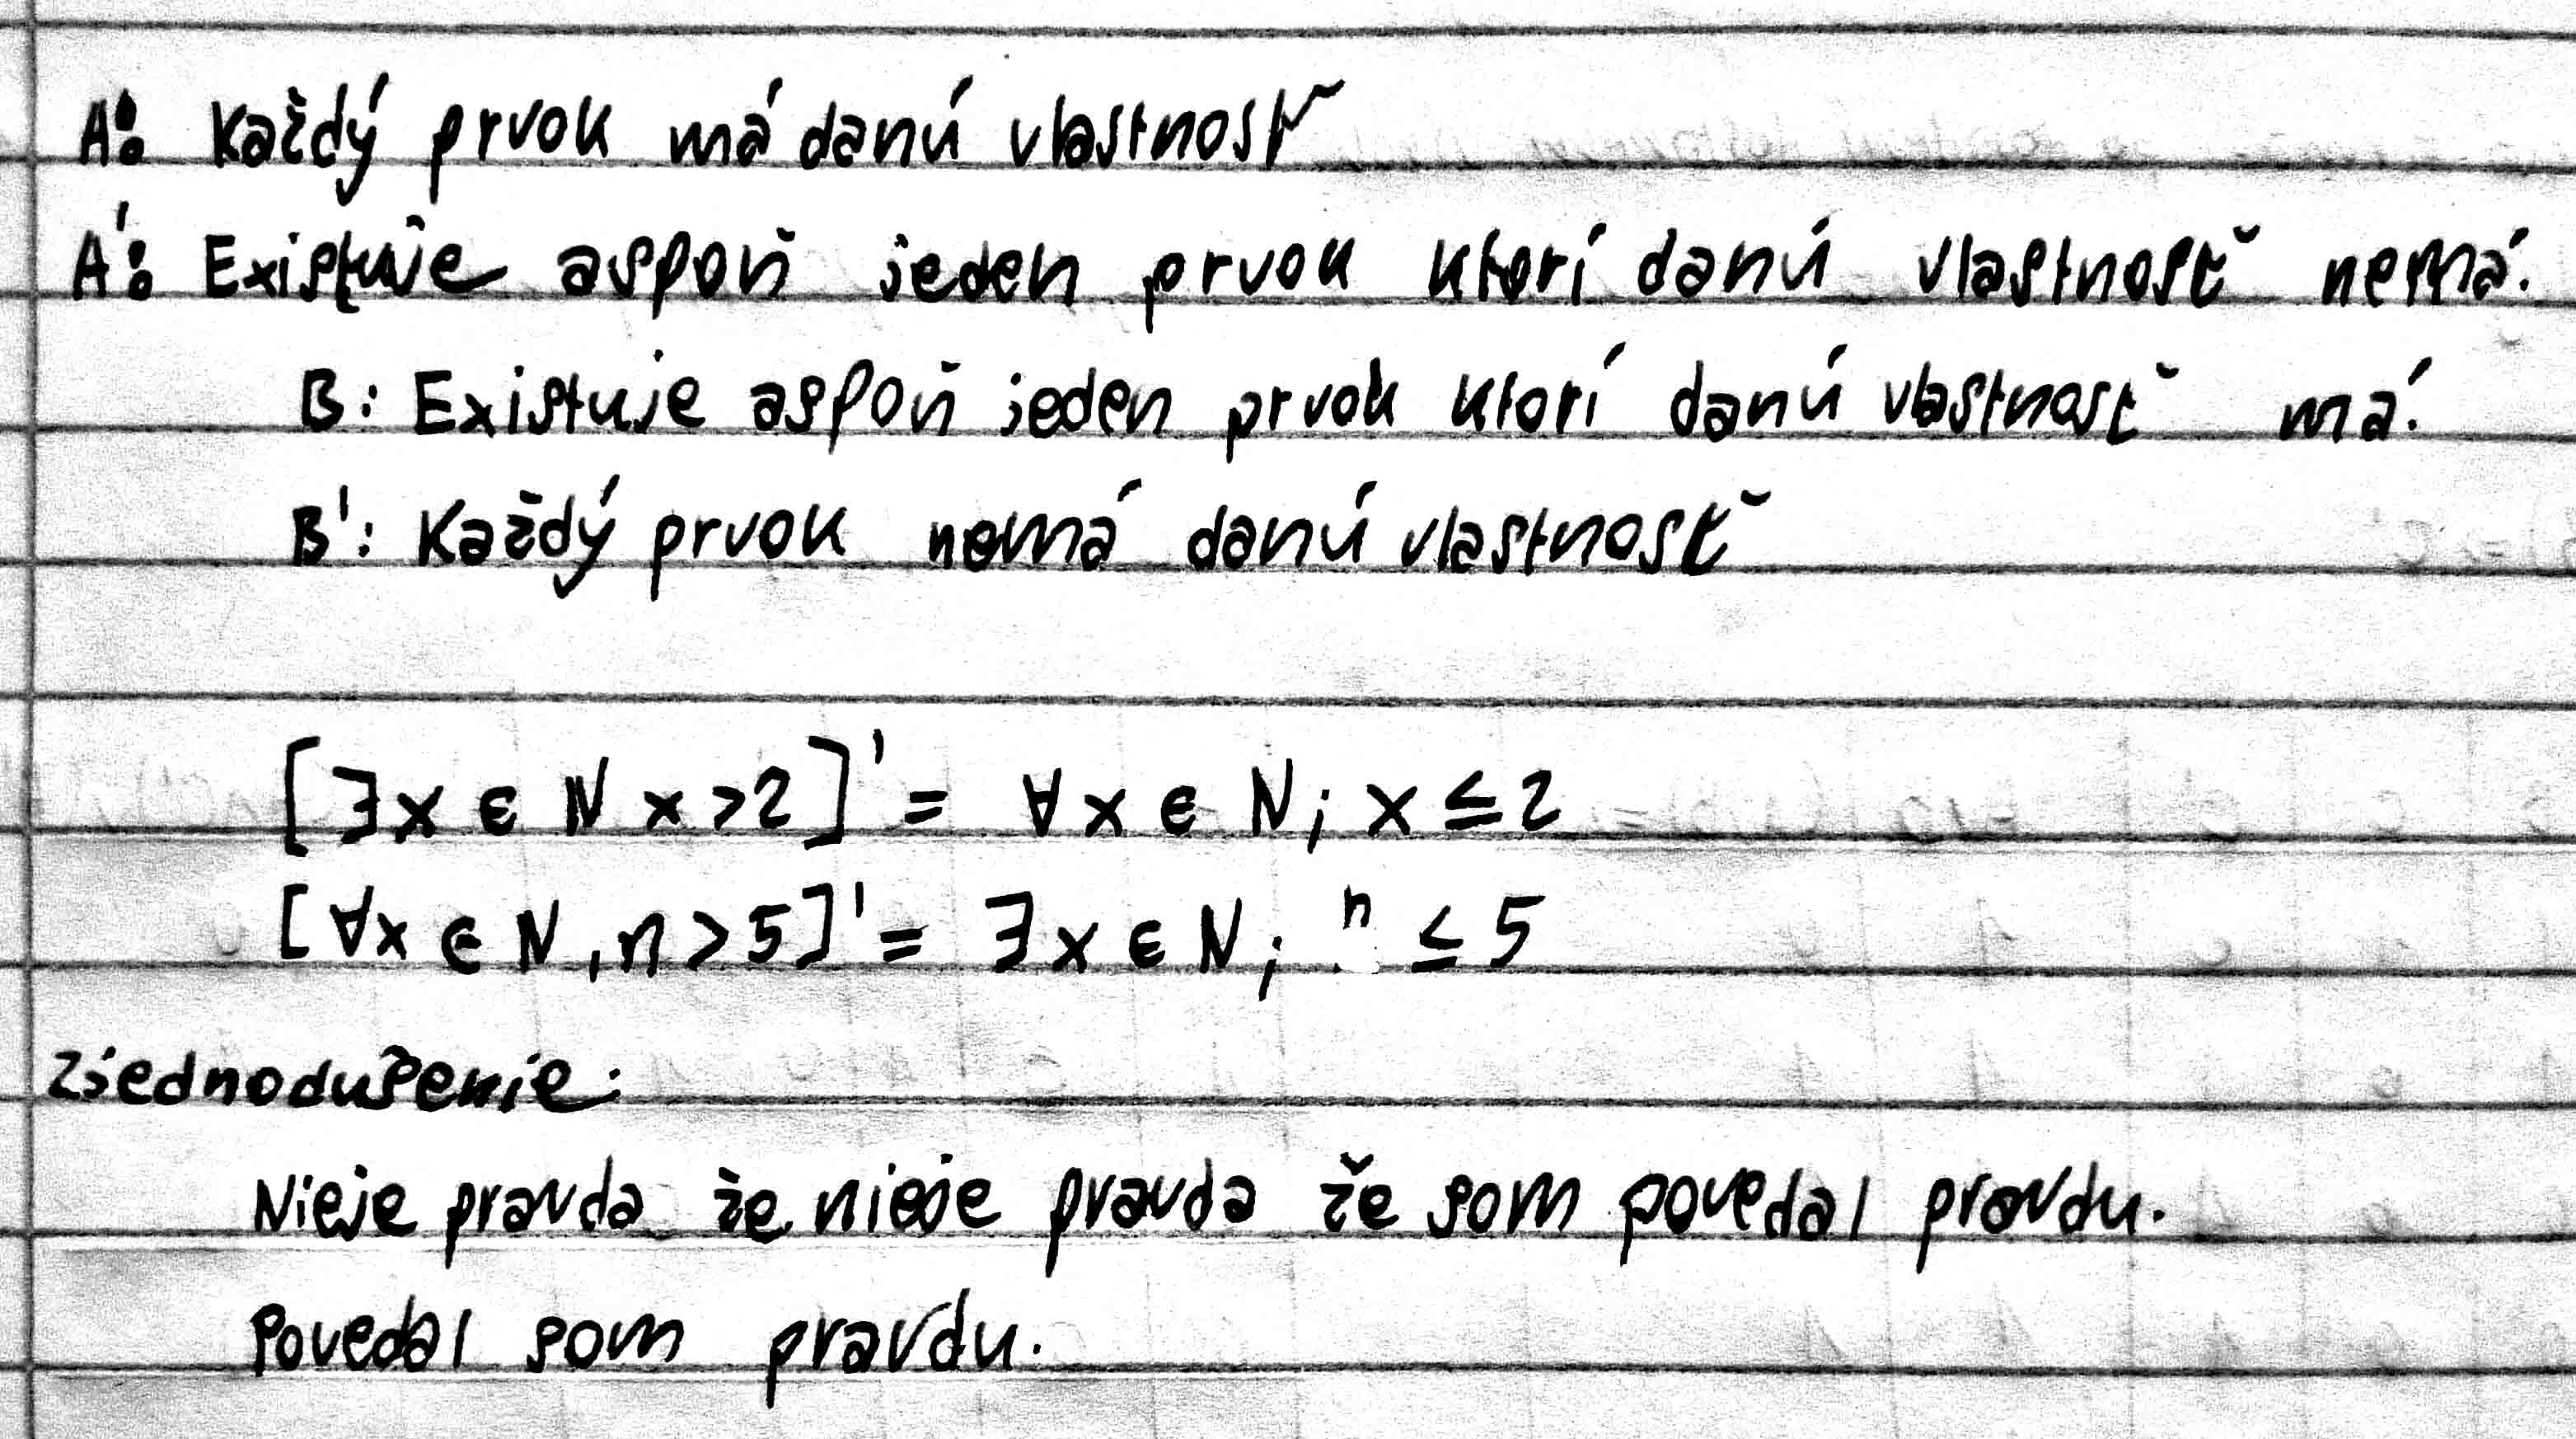 A: Každý prvok má danú vlastnosť
A': Existuje aspoň jeden prvok ktorí danú vlastnosť nemá.
B: Existuje aspoň jeden prvok ktorí danú vlastnosť má.
B': Každý prvok nemá danú vlastnosť
[∃x ∈ N x>2]' = ∀x ∈ N; x ≤ 2
[∀x ∈ N, n>5]' = ∃x ∈ N; n ≤ 5
Zjednodušenie:
Nieje pravda že nieje pravda že som povedal pravdu.
Povedal som pravdu.